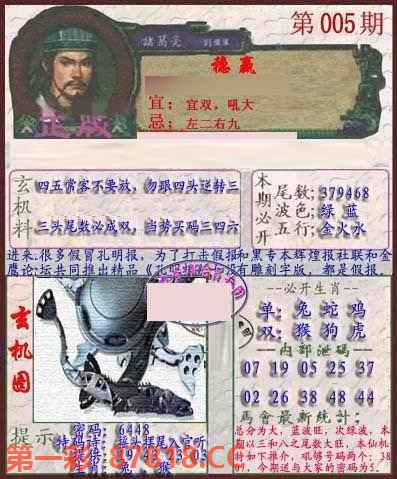 第005期
諸葛亮
穩赢
宜：宜双，吼大
忌：左二右九
正版
玄机料
四五常客不要放，勿跟四头逆转三
三头尾数必成双，当势买码三四六
本期必开
尾数;379468
波色;绿 蓝
五行;金火水
进来.很多假冒孔明报，为了打击假报和黑专本辉煌报社联和金
鹰论坛共同推出精品
没有雕刻字版，都是假报.
玄机图
必开生肖
单: 兔 蛇 鸡
双: 猴 狗 虎
内部泄码
07 19 05 25 37
02 26 38 48 44
馬會最新統計:
总分为大，蓝波旺，次绿波，本
期以三和八之尾数大旺，本仙机
特如下推介，吼够号码两个: 38
09，今期送与大家的密码为5.
提示
密码: 6448
特码诗: 接头摆尾入宫听
第一彩 87818.CC